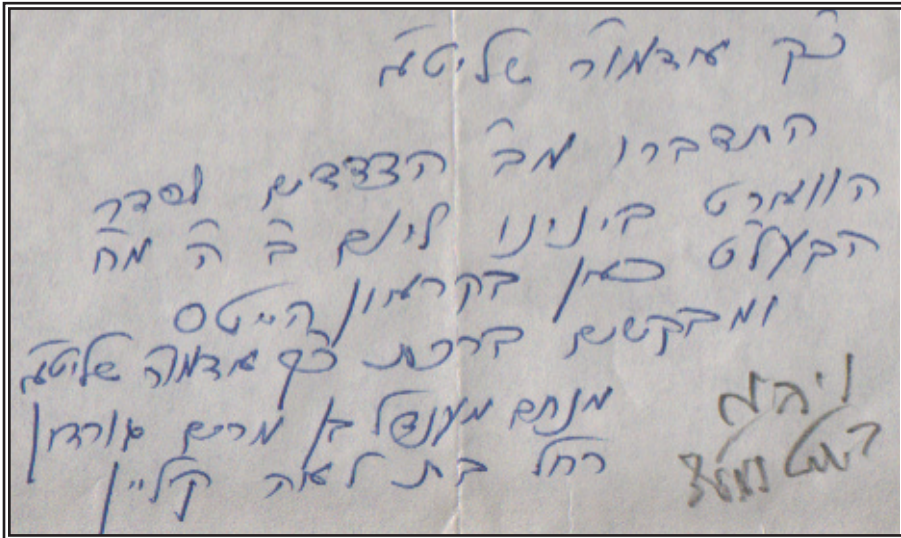 כ"ק אדמו"ר שליט"א
התדברו מב' הצדדים לסדר
הווארט בינינו ליום ב' ה' מ"ח
הבעל"ט כאן בקראון הייטס
ומבקשים ברכת כ"ק אדמו"ר שליט"א
מנחם מענדל בן מרים גורדון
רחל בת לאה קליין
ויהא